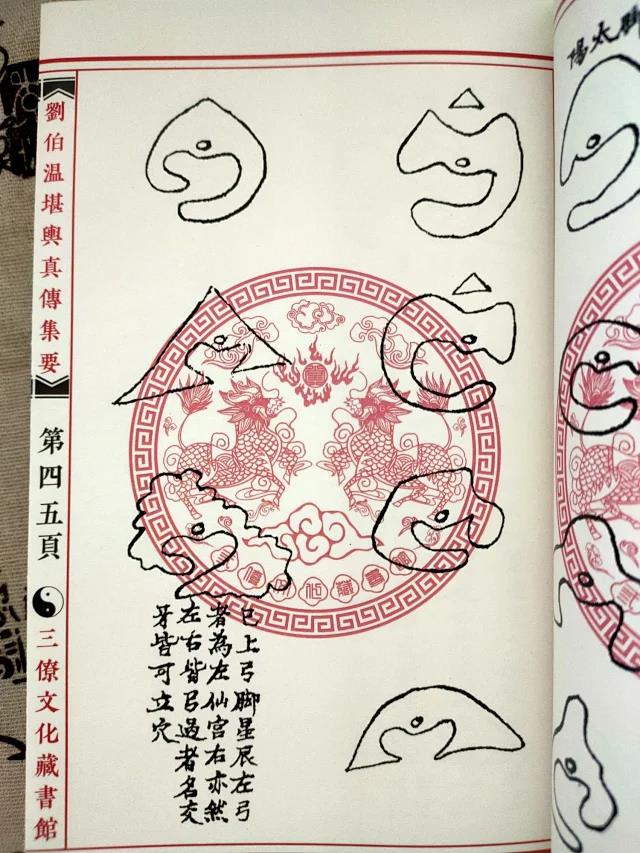 劉伯温堪輿真傳集要
第四五頁
三僚文化藏書館
已上弓脚星辰左弓
者為左仙宫右亦然
左右皆弓過者名交
牙皆可立穴
太陽